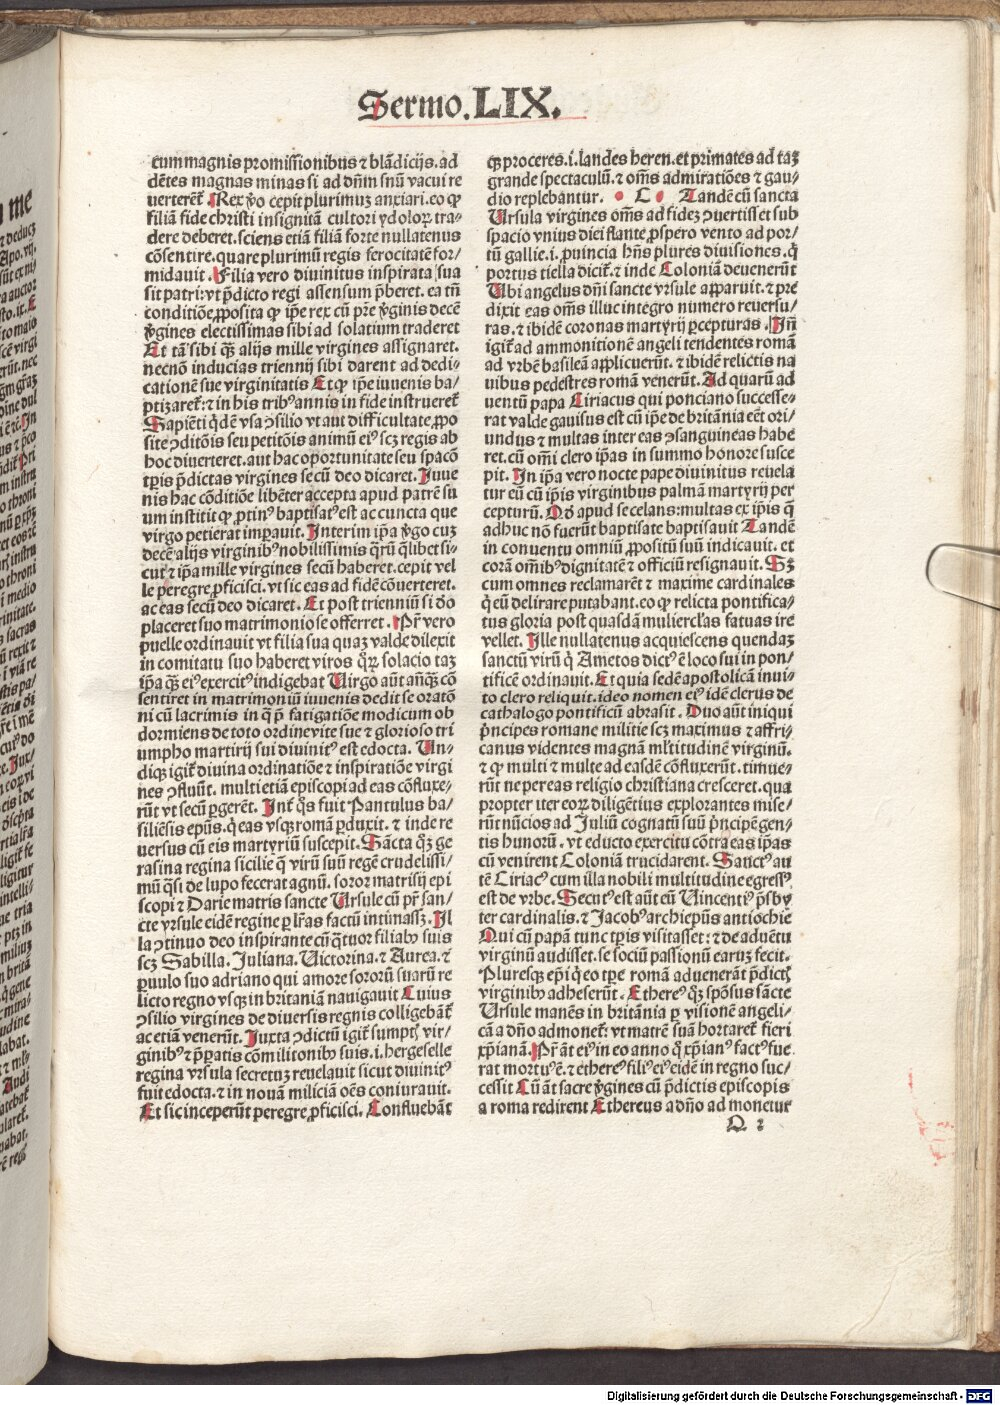 Sermo. LIX.
cum magnis promissionibus ⁊ blãdicijs. ad
dẽtes magnas minas si ad dñm snũ vacui re
verterẽt. Rex ṽo cepit plurimuʒ anxiari. eo ꝙ
filiã fide christi insignitã cultori ydoloꝝ tra⸗
dere deberet. sciens etiã filiã forte nullatenus
cõsentire. quare plurimũ regis ferocitatẽ for⸗
midauit. Filia vero diuinitus inspirata sua
sit patri: vt p̃dicto regi assensum p̃beret. ea tñ
conditiõe ꝓposita ꝙ ip̃e rex cũ pr̃e ṽginis decẽ
ṽgines electissimas sibi ad solatium traderet
Et tã sibi qʒ̃ alijs mille virgines assignaret.
necnõ inducias triennij sibi darent ad dedi⸗
cationẽ sue virginitatis Et ꝙ ip̃e iuuenis ba⸗
ptizaret̃: ⁊ in his tribꝰ annis in fide instrueret̃
Sapiẽti q̃dẽ vsa ꝯsilio vt aut difficultate ꝓpo
site ꝯditõis seu petitõis animũ eiꝰ scʒ regis ab
hoc diuerteret. aut hac oportunitate seu spacõ
tꝑis p̃dictas virgines secũ deo dicaret. Iuue
nis hac cõditiõe libẽter accepta apud patrẽ su
um institit ꝙ ꝓtinꝰ baptisatꝰ est ac cuncta que
virgo petierat imꝑauit. Interim ip̃a ṽgo cuʒ
decẽ alijs virginibꝰ nobilissimis qͣrũ q̃libet si⸗
cut ⁊ ip̃a mille virgines secũ haberet. cepit vel
le peregre ꝓficisci. vt sic eas ad fidẽ cõuerteret.
ac eas secũ deo dicaret. Et post trienniũ si dõ
placeret suo matrimonio se offerret. Pr̃ vero
puelle ordinauit vt filia sua quaʒ valde dilexit
in comitatu suo haberet viros q̃ꝝ solacio taʒ
ip̃a qʒ̃ eiꝰ exercitꝰ indigebat Virgo aũt añqʒ̃ cõ
sentiret in matrimoniũ iuuenis dedit se oratõ
ni cũ lacrimis in q̃ p̃ fatigatiõe modicum ob
dormiens de toto ordine vite sue ⁊ glorioso tri
umpho martirij sui diuinitꝰ est edocta. Vn⸗
diqʒ igit̃ diuina ordinatiõe ⁊ inspiratiõe virgi
nes ꝯfluũt. multi etiam episcopi ad eas cõfluxe⸗
rũt vt secũ ꝑgerẽt. Int̃ q̃s fuit Pantulus ba⸗
siliẽsis ep̃us. q̃ eas vsqʒ romã ꝑduxit. ⁊ inde re
uersus cũ eis martyriũ suscepit. Sãcta qͦʒ ge
rasina regina sicilie q̃ virũ suũ regẽ crudelissi⸗
mũ q̃si de lupo fecerat agnũ. soror matrisij epi
scopi ⁊ Darie matris sancte Ursule cũ pr̃ san⸗
cte vrsule eidẽ regine ꝑ lr̃as factũ intimassʒ. Il
la ꝯtinuo deo inspirante cũ q̃tuor filiabꝰ suis
scʒ Sabilla. Iuliana. Victorina. ⁊ Aurea. ⁊
ꝑuulo suo adriano qui amore sororũ suarũ re
licto regno vsqʒ in britaniã nauigauit Cuius
ꝯsilio virgines de diuersis regnis colligebãt̃
ac etiã venerũt. Iuxta ꝯdictũ igit̃ sumptꝭ vir⸗
ginibꝰ ⁊ p̃ꝑatis cõmilitonibꝰ suis .i. hergeselle
regina vrsula secretuʒ reuelauit sicut diuinitꝰ
fuit edocta. ⁊ in nouã miliciã oẽs coniurauit.
Et sic inceperũt peregre ꝓficisci. Confluebãt
qʒ proceres .i. landes heren. et primates ad taʒ
grande spectaculũ. ⁊ om̃s admiratiões ⁊ gau⸗
dio replebãntur. C Tandẽ cũ sancta
Ursula virgines om̃s ad fideʒ ꝯuertisset sub
spacio vnius diei flante ꝓspero vento ad por⸗
tũ gallie .i. ꝓuincia hñs plures diuisiones. q̃
portus tiella dicit̃. ⁊ inde Coloniã deuenerũt
Ubi angelus dñi sancte vrsule apparuit. ⁊ pre
dixit eas om̃s illuc integro numero reuersu⸗
ras. ⁊ ibidẽ coronas martyrij ꝑcepturas. Iñ
igit̃ ad ammonitionẽ angeli tendentes romã
ad vrbẽ basileã applicuerũt. ⁊ ibidẽ relictis na
uibus pedestres romã venerũt. Ad quarũ ad
uentũ papa Ciriacus qui ponciano successe⸗
rat valde gauisus est cũ ip̃e de britãnia eẽt ori⸗
undus ⁊ multas inter eas ꝯsanguineas habe
ret. cũ om̃i clero ip̃as in summo honore susce
pit. In ip̃a vero nocte pape diuinitus reuela
tur eũ cũ ip̃is virginibus palmã martyrij per
cepturũ. Qd̃ apud se celans: multas ex ip̃is q̃
adhuc nõ fuerũt baptisate baptisauit Tandẽ
in conuentu omniũ ꝓpositũ suũ indicauit. et
corã om̃ibꝰ dignitatẽ ⁊ officiũ resignauit. Sʒ
cum omnes reclamarẽt ⁊ maxime cardinales
q̃ eũ delirare putabant. eo ꝙ relicta pontifica⸗
tus gloria post quasdã muliercl̃as fatuas ire
vellet. Ille nullatenus acquiescens quendaʒ
sanctũ virũ q̃ Ametos dictꝰ ẽ loco sui in pon⸗
tificẽ ordinauit. Et quia sedẽ apostolicã inui⸗
to clero reliquit. ideo nomen eiꝰ idẽ clerus de
cathalogo pontificũ abrasit. Duo aũt iniqui
p̃ncipes romane militie scʒ maximus ⁊ affri⸗
canus videntes magnã ml̃titudinẽ virginũ.
⁊ ꝙ multi ⁊ multe ad easdẽ cõfluxerũt. timue⸗
rũt ne per eas religio christiana cresceret. qua
propter iter eoꝝ diligẽtius explorantes mise⸗
rũt nũcios ad Juliũ cognatũ suũ p̃ncipẽ gen⸗
tis hunorũ. vt educto exercitu cõtra eas ip̃as
cũ venirent Coloniã trucidarent. Sanctꝰ au
tẽ Ciriacꝰ cum illa nobili multitudine egressꝰ
est de vrbe. Secutꝰ est aũt eũ Vincentiꝰ p̃sby
ter cardinalis. ⁊ Jacobꝰ archiep̃us antiochie
Qui cũ papã tunc tꝑis visitasset: ⁊ de aduẽtu
virginũ audisset. se sociũ passionũ earuʒ fecit.
Pluresqʒ ep̃i q̃ eo tꝑe romã aduenerãt p̃dictꝭ
virginibꝰ adheserũt. Ethereꝰ qͦʒ spõsus sãcte
Ursule manẽs in britãnia ꝑ visionẽ angeli⸗
cã a dño admonet̃: vt matrẽ suã hortaret̃ fieri
xp̃ianã. Pr̃ ãt eiꝰ in eo anno q̃ xp̃ianꝰ factꝰ fue
rat mortuꝰ ẽ. ⁊ ethereꝰ filiꝰ eiꝰ eidẽ in regno suc⸗
cessit Cũ ãt sacre ṽgines cũ p̃dictis episcopis
a roma redirent Ethereus a dño ad monetur
Q 2
Digitalisierung gefördert durch die Deutsche Forschungsgemeinschaft - DFG